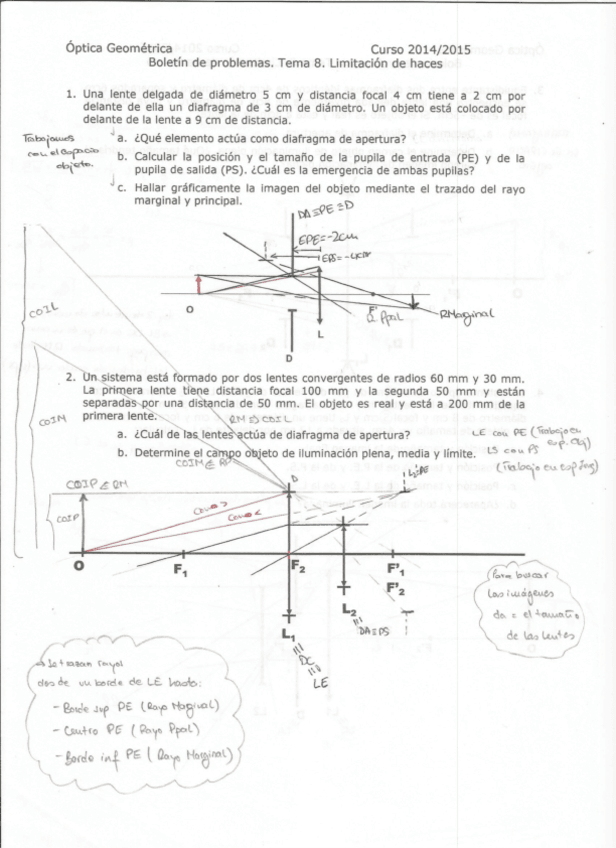 Óptica Geométrica Curso 2014/2015
Boletín de problemas. Tema 8. Limitación de haces
1. Una lente delgada de diámetro 5 cm y distancia focal 4 cm tiene a 2 cm por
delante de ella un diafragma de 3 cm de diámetro. Un objeto está colocado por
delante de la lente a 9 cm de distancia.
Trabajamos
con el espacio
objeto.
a. ¿Qué elemento actúa como diafragma de apertura?
b. Calcular la posición y el tamaño de la pupila de entrada (PE) y de la
pupila de salida (PS). ¿Cuál es la emergencia de ambas pupilas?
c. Hallar gráficamente la imagen del objeto mediante el trazado del rayo
marginal y principal.
DA≡PE≡D
EPE=-2cm
EPS=-4cm
O
F'
R Ppal
RMarginal
L
D
COIL
COIM
2. Un sistema está formado por dos lentes convergentes de radios 60 mm y 30 mm.
La primera lente tiene distancia focal 100 mm y la segunda 50 mm y están
separadas por una distancia de 50 mm. El objeto es real y está a 200 mm de la
primera lente.
RM ⇒ COIL
a. ¿Cuál de las lentes actúa de diafragma de apertura?
LE con PE (Trabajo en esp. obj)
b. Determine el campo objeto de iluminación plena, media y límite.
LS con PS
(Trabajo en esp Img)
COIM ⇐ RP
COIP ⇐ RM
COIP
D
L2'≡PE
Cono >
Cono <
O
F1
F2
F'1
F'2
L1
L2
DA≡PS
DC
LE
Para buscar
las imágenes
da = el tamaño
de las lentes
Se trazan rayos
desde un borde de LE hasta:
- Borde sup PE (Rayo Marginal)
- Centro PE (Rayo Ppal)
- Borde inf PE (Rayo Marginal)